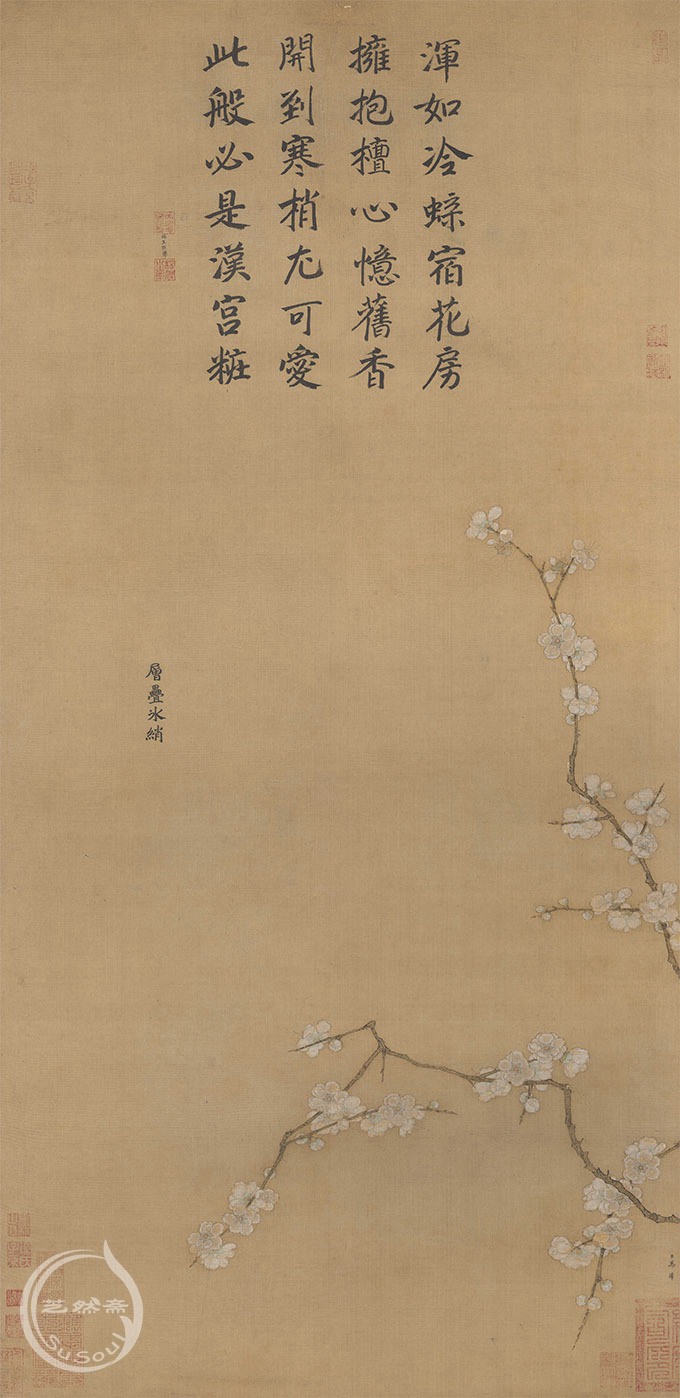 渾如冷蝶宿花房
擁抱檀心憶舊香
開到寒梢尤可愛
此般必是漢宫粧
層疊冰綃
芝然斋
Su.Soul